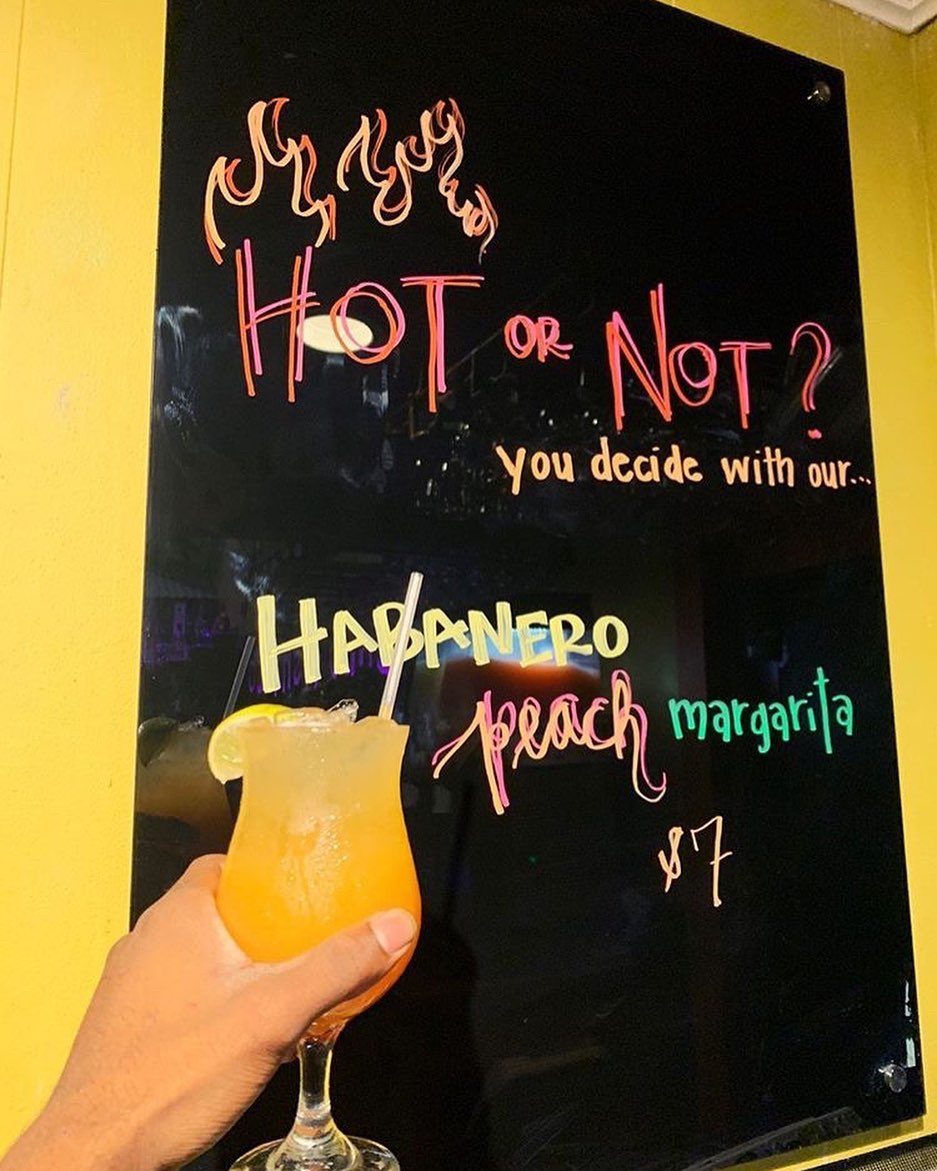 HOT OR NOT?
you decide with our...
HABANERO
peach margarita
$7